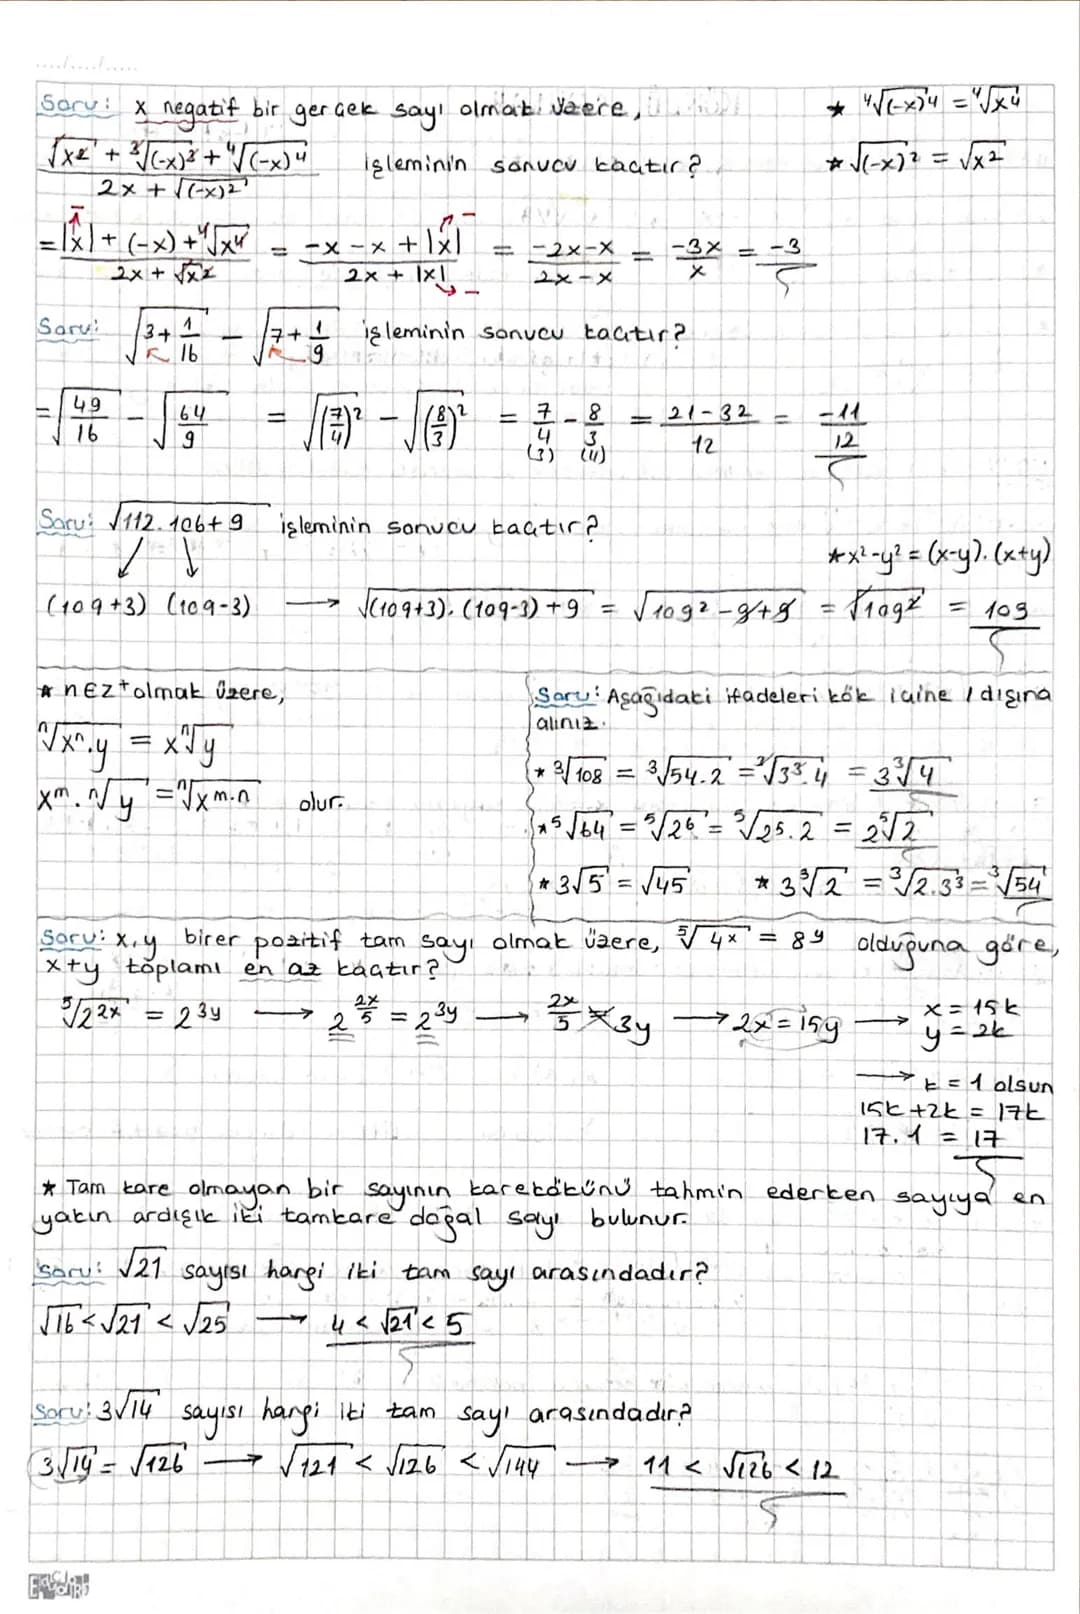 Soru: x negatif bir gerçek sayı olmak üzere,
* ⁴√(-x)⁴ = ⁴√x⁴
(√x² + ³√(-x)³ + ⁴√(-x)⁴) / (2x + √(-x)²) işleminin sonucu kaçtır?
* √(-x)² = √x²
= (|x| + (-x) + ⁴√x⁴) / (2x + √x²) = (-x - x + |x|) / (2x + |x|) = (-2x-x) / (2x-x) = -3x / x = -3
Soru: √(3 + 1/16) - √(7 + 1/9) işleminin sonucu kaçtır?
= √(49/16) - √(64/9) = √(7/4)² - √(8/3)² = 7/4 (3) - 8/3 (4) = (21-32) / 12 = -11/12
Soru: √(112.106+9) işleminin sonucu kaçtır?
* x²-y² = (x-y).(x+y)
(109+3) (109-3) → √((109+3).(109-3)+9) = √(109²-9+9) = √109² = 109
* n∈Z⁺ olmak üzere,
ⁿ√(xⁿ.y) = xⁿ√y
xᵐ.ⁿ√y = ⁿ√x^(m.n) olur.
Soru: Aşağıdaki ifadeleri kök içine / dışına
alınız.
* ³√108 = ³√54.2 = ³√3³.4 = 3³√4
* ⁵√64 = ⁵√2⁶ = ⁵√2⁵.2 = 2⁵√2
* 3√5 = √45 * 3³√2 = ³√2.3³ = ³√54
Soru: x,y birer pozitif tam sayı olmak üzere, ⁵√4ˣ = 8ʸ olduğuna göre,
x+y toplamı en az kaçtır?
⁵√2²ˣ = 2³ʸ → 2^(2x/5) = 2³ʸ → 2x/5 = 3y → 2x = 15y → x = 15k
y = 2k
→ k = 1 olsun
15k+2k = 17k
17.1 = 17
* Tam kare olmayan bir sayının karekökünü tahmin ederken sayıya en
yakın ardışık iki tamkare doğal sayı bulunur.
Soru: √21 sayısı hangi iki tam sayı arasındadır?
√16 < √21 < √25 → 4 < √21 < 5
Soru: 3√14 sayısı hangi iki tam sayı arasındadır?
3√14 = √126 → √121 < √126 < √144 → 11 < √126 < 12